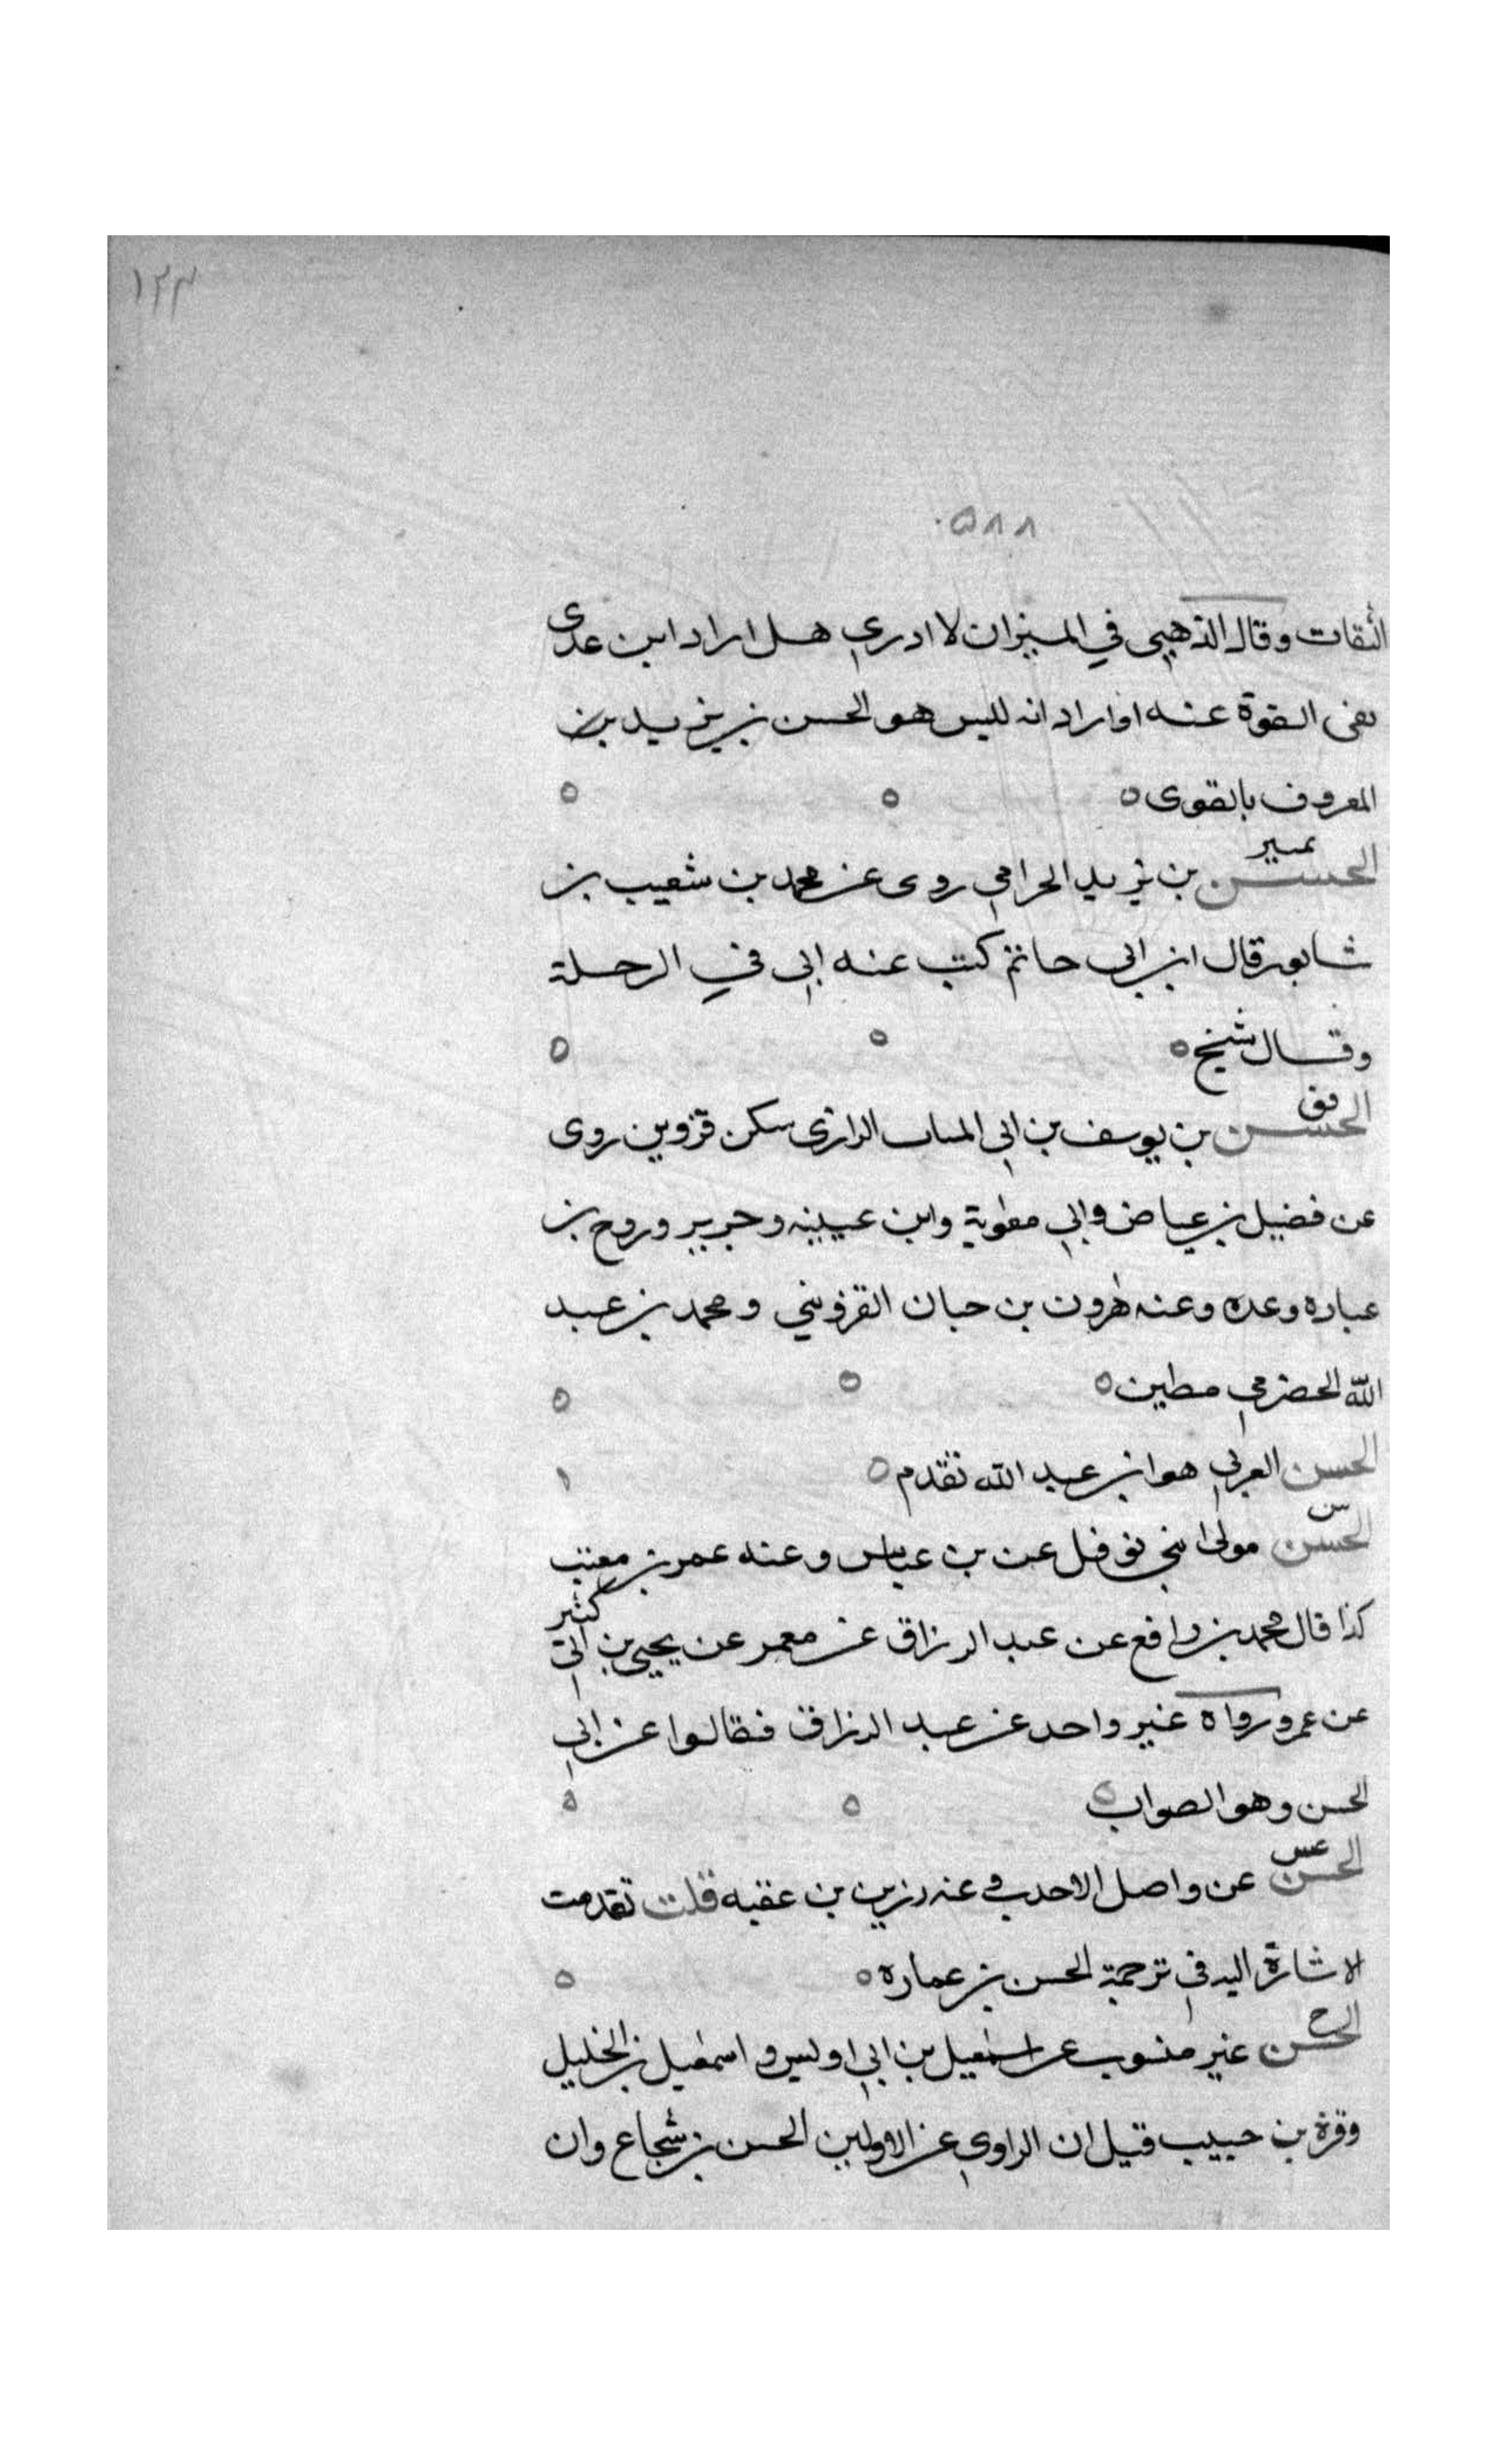 ١٢٣
٥٨٨
الثقات وقال الذهبي في الميزان لا ادري هل اراد ابن عدى
نفى القوة عنه او اراد انه ليس هو الحسن بن يزيد بن
المعروف بالقوى ه ه ه
تمييز
الحسن بن يزيد الحرامي روى عن محمد بن شعيب بن
شابور قال ابن ابي حاتم كتب عنه ابي في الرحلة
وقال شيخ ه ه ه
فق
الحسن بن يوسف بن ابي المساب الرازي سكن قزوين روى
عن فضيل بن عياض وابي معوية وابن عيينه وجرير وروح بن
عباده وعده وعنه هرون بن حبان القزويني ومحمد بن عبد
الله الحضرمي مطين ه ه ه
الحسن العرني هو ابن عبد الله تقدم ه
س
الحسن مولى بني نوفل عن بن عباس وعنه عمر بن معتب
كذا قال محمد بن رافع عن عبد الرزاق عن معمر عن يحيى بن ابي كثير
عن عمر ورواه غير واحد عن عبد الرزاق فقالوا عن ابي
الحسن وهو الصواب ه ه ه
عس
الحسن عن واصل الاحدب وعنه رزين بن عقبه قلت تقدمت
الاشارة اليه في ترجمة الحسن بن عماره ه ه
خ
الحسن غير منسوب عن اسمعيل بن ابي اويس واسمعيل بن الخليل
وقرة بن حبيب قيل ان الراوي عن الاولين الحسن بن شجاع وان